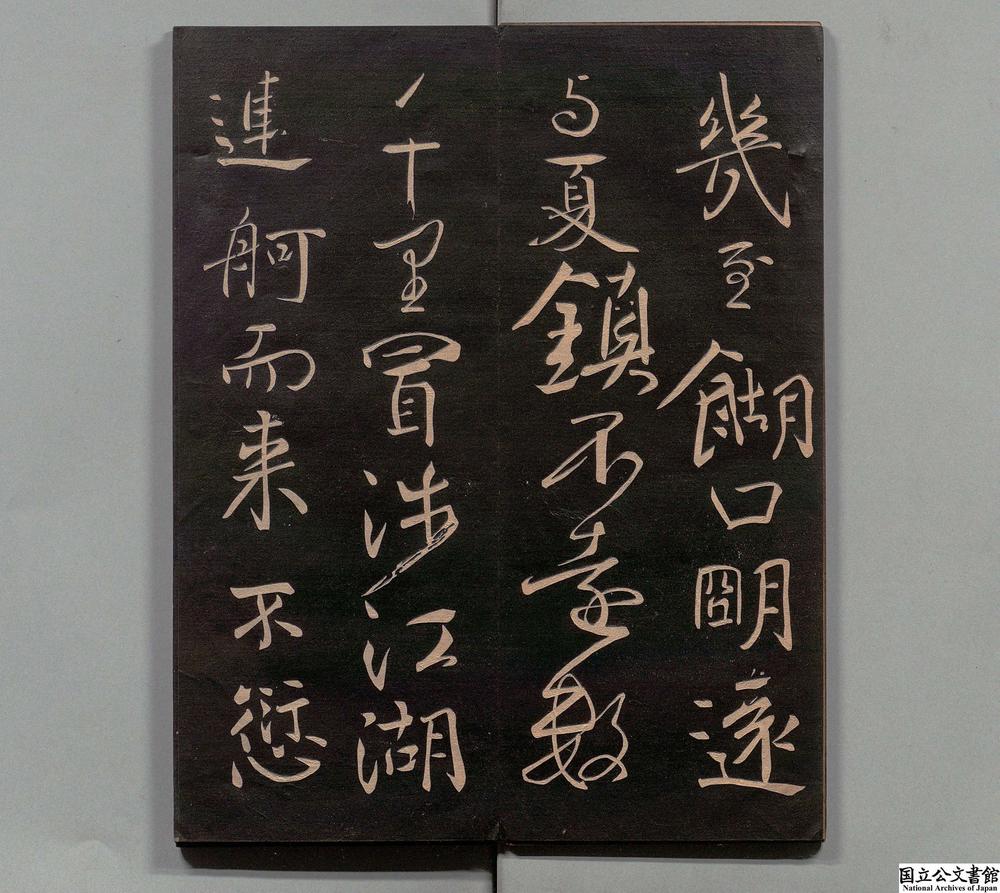 幾至餬口明遠
与夏鎮不遠數
千里冒涉江湖
連舸而来不愆
国立公文書館
National Archives of Japan